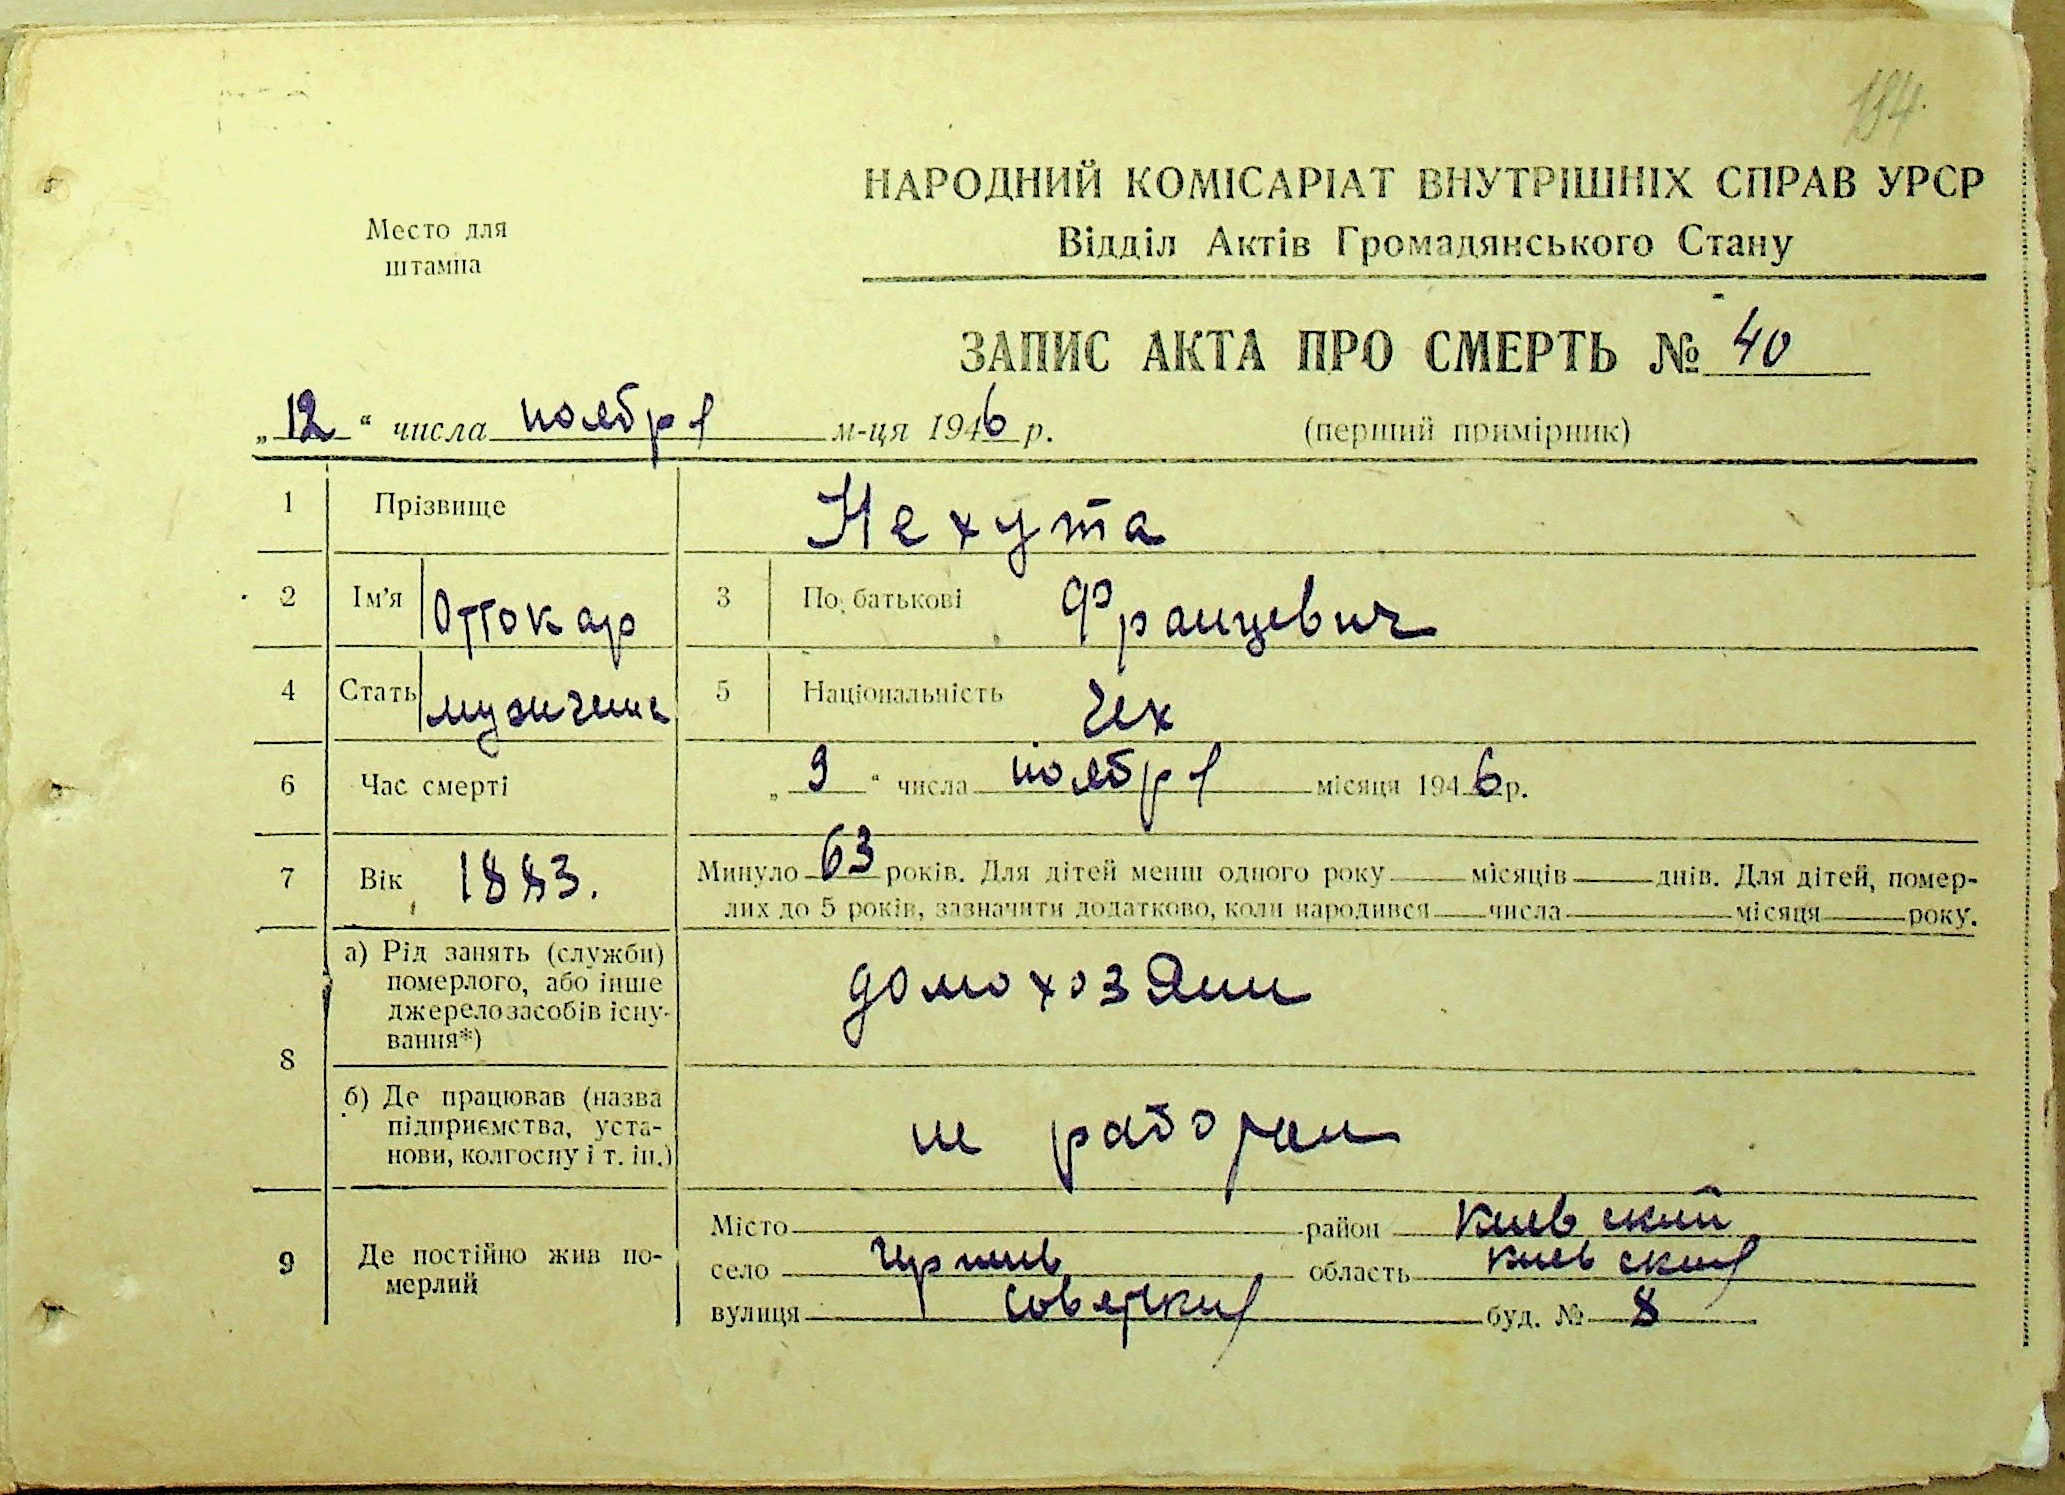 194.
НАРОДНИЙ КОМІСАРІАТ ВНУТРІШНІХ СПРАВ УРСР
Место для
штампа
Відділ Актів Громадянського Стану
ЗАПИС АКТА ПРО СМЕРТЬ № 40
„12“ числа ноября м-ця 1946 р. (перший примірник)
1 Прізвище Нехута
2 Ім'я Оттокар 3 По батькові Францевич
4 Стать мужчина 5 Національність чех
6 Час смерті „9“ числа ноября місяця 1946 р.
7 Вік 1883. Минуло 63 років. Для дітей менш одного року місяців днів. Для дітей, помер-
лих до 5 років, зазначити додатково, коли народився числа місяця року.
8 а) Рід занять (служби)
померлого, або інше
джерело засобів існу-
вання*)
домохозяин
б) Де працював (назва
підприємства, уста-
нови, колгоспу і т. ін.)
не работал
9 Де постійно жив по-
мерлий
Місто район Киевский
село область Киевская
вулиця Советская буд. № 8